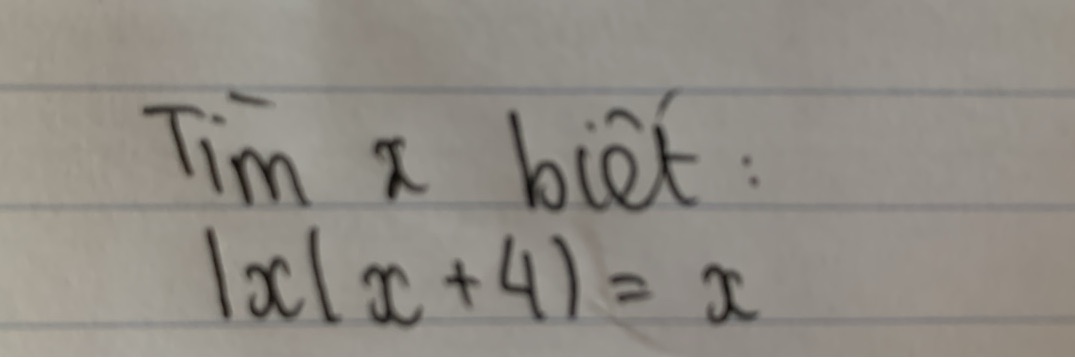 Tìm x biết :
|x(x+4)| = x